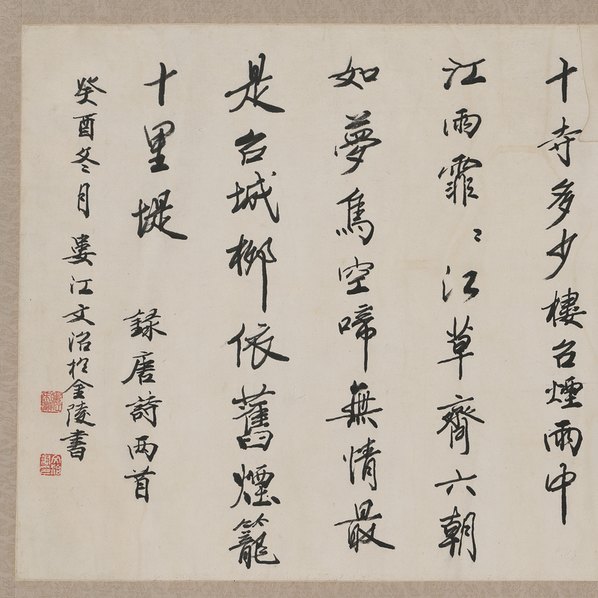 十寺多少樓台煙雨中
江雨霏〻江草齊六朝
如夢鳥空啼無情最
是台城柳依舊煙籠
十里堤
錄唐詩兩首
癸酉冬月 婁江文治於金陵書